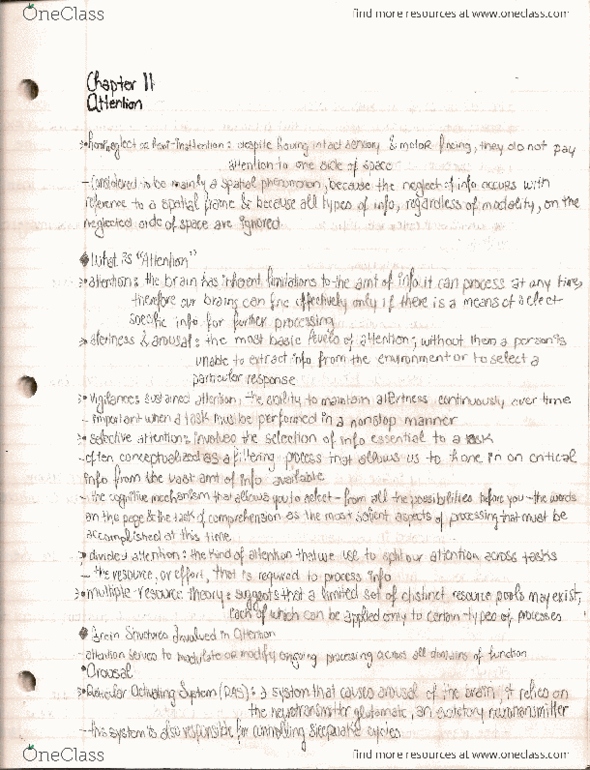 OneClass
find more resources at www.oneclass.com
Chapter 11
Attention
hemineglect or hemi-inattention: despite having intact sensory & motor fncing, they do not pay
attention to one side of space
- Considered to be mainly a spatial phenomenon, because the neglect of info occurs with
reference to a spatial frame & because all types of info, regardless of modality, on the
neglected side of space are ignored
What is "Attention"
attention: the brain has inherent limitations to the amt of info it can process at any time,
therefore our brains can fnc effectively only if there is a means of select
specific info for further processing
alertness & arousal: the most basic levels of attention; without them a person is
unable to extract info from the environment or to select a
particular response
vigilance: sustained attention; the ability to maintain alertness continuously over time
- important when a task must be performed in a nonstop manner
selective attention: involves the selection of info essential to a task
- often conceptualized as a filtering process that allows us to hone in on critical
info from the vast amt of info available
- the cognitive mechanism that allows you to select - from all the possibilities before you - the words
on the page & the task of comprehension as the most salient aspects of processing that must be
accomplished at this time
divided attention: the kind of attention that we use to split our attention across tasks
- the resource, or effort, that is required to process info
multiple-resource theory: suggests that a limited set of distinct resource pools may exist,
each of which can be applied only to certain types of processes
Brain Structures Involved in Attention
- attention serves to modulate or modify ongoing processing across all domains of function
Arousal
Reticular Activating System (RAS): a system that causes arousal of the brain, it relies on
the neurotransmitter glutamate, an excitatory neurotransmitter
- this system is also responsible for controlling sleep-wake cycles
OneClass
find more resources at www.oneclass.com